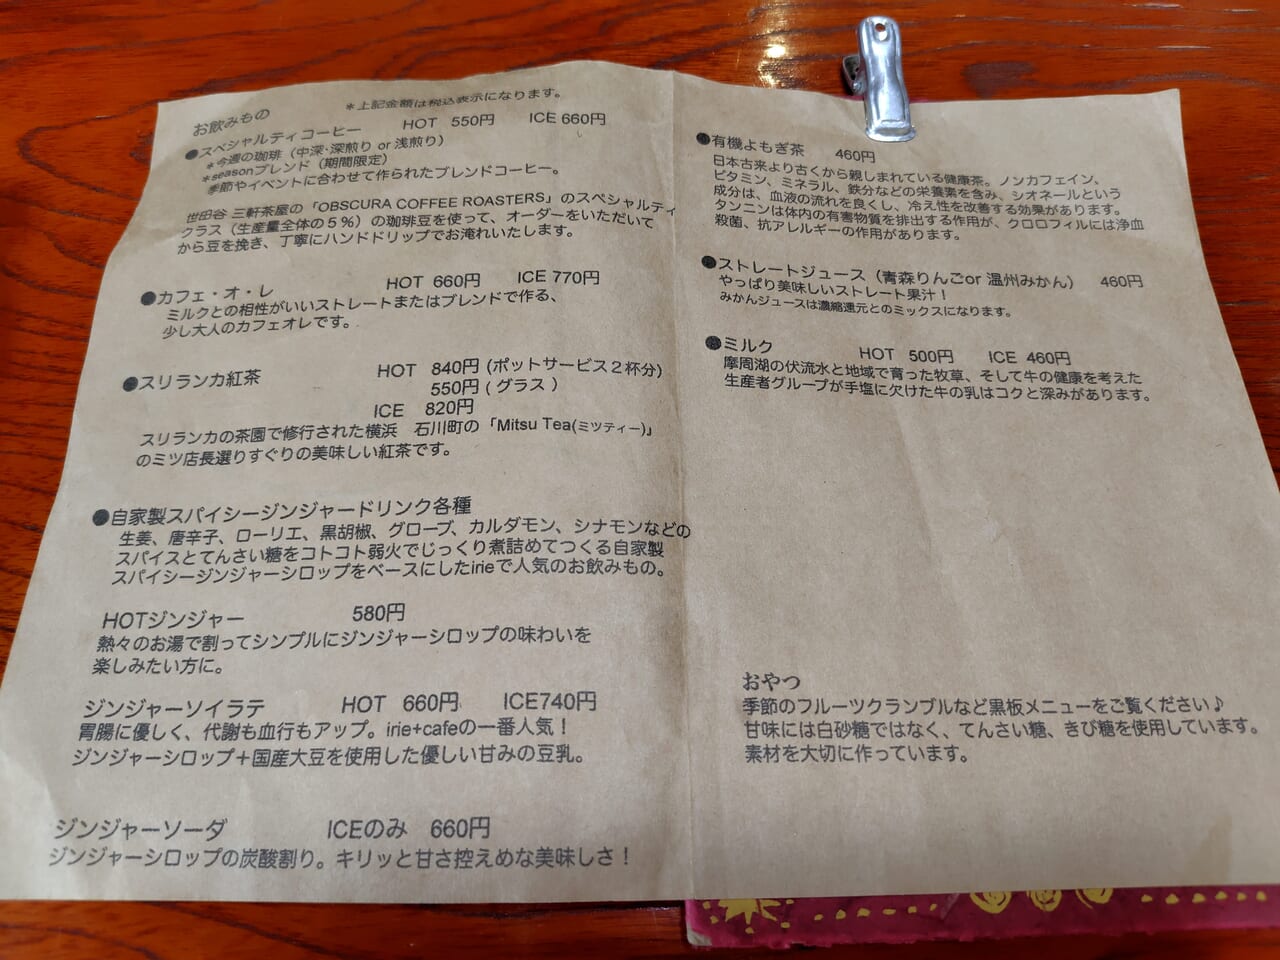 お飲みもの
＊上記金額は税込表示になります。
●スペシャルティコーヒー HOT 550円 ICE 660円
＊今週の珈琲（中深・深煎り or 浅煎り）
＊seasonブレンド（期間限定）
季節やイベントに合わせて作られたブレンドコーヒー。
世田谷 三軒茶屋の「OBSCURA COFFEE ROASTERS」のスペシャルティ
クラス（生産量全体の５％）の珈琲豆を使って、オーダーをいただいて
から豆を挽き、丁寧にハンドドリップでお淹れいたします。
●カフェ・オ・レ HOT 660円 ICE 770円
ミルクとの相性がいいストレートまたはブレンドで作る、
少し大人のカフェオレです。
●スリランカ紅茶 HOT 840円 (ポットサービス２杯分)
550円 ( グラス )
ICE 820円
スリランカの茶園で修行された横浜 石川町の「Mitsu Tea(ミツティー)」
のミツ店長選りすぐりの美味しい紅茶です。
●自家製スパイシージンジャードリンク各種
生姜、唐辛子、ローリエ、黒胡椒、グローブ、カルダモン、シナモンなどの
スパイスとてんさい糖をコトコト弱火でじっくり煮詰めてつくる自家製
スパイシージンジャーシロップをベースにしたirieで人気のお飲みもの。
HOTジンジャー 580円
熱々のお湯で割ってシンプルにジンジャーシロップの味わいを
楽しみたい方に。
ジンジャーソイラテ HOT 660円 ICE740円
胃腸に優しく、代謝も血行もアップ。irie+cafeの一番人気！
ジンジャーシロップ＋国産大豆を使用した優しい甘みの豆乳。
ジンジャーソーダ ICEのみ 660円
ジンジャーシロップの炭酸割り。キリッと甘さ控えめな美味しさ！
●有機よもぎ茶 460円
日本古来より古くから親しまれている健康茶。ノンカフェイン、
ビタミン、ミネラル、鉄分などの栄養素を含み、シオネールという
成分は、血液の流れを良くし、冷え性を改善する効果があります。
タンニンは体内の有害物質を排出する作用が、クロロフィルには浄血
殺菌、抗アレルギーの作用があります。
●ストレートジュース（青森りんごor 温州みかん） 460円
やっぱり美味しいストレート果汁！
みかんジュースは濃縮還元とのミックスになります。
●ミルク HOT 500円 ICE 460円
摩周湖の伏流水と地域で育った牧草、そして牛の健康を考えた
生産者グループが手塩に欠けた牛の乳はコクと深みがあります。
おやつ
季節のフルーツクランブルなど黒板メニューをご覧ください♪
甘味には白砂糖ではなく、てんさい糖、きび糖を使用しています。
素材を大切に作っています。